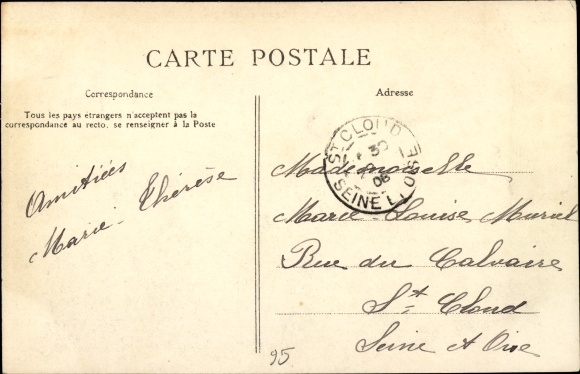 CARTE POSTALE
Correspondance
Tous les pays étrangers n'acceptent pas la
correspondance au recto, se renseigner à la Poste
Amitiés
Marie-Thérèse
Adresse
ST CLOUD
30
08
SEINE ET OISE
Mademoiselle
Marie-Louise Muriel
Rue du Calvaire
St Cloud
Seine et Oise
95